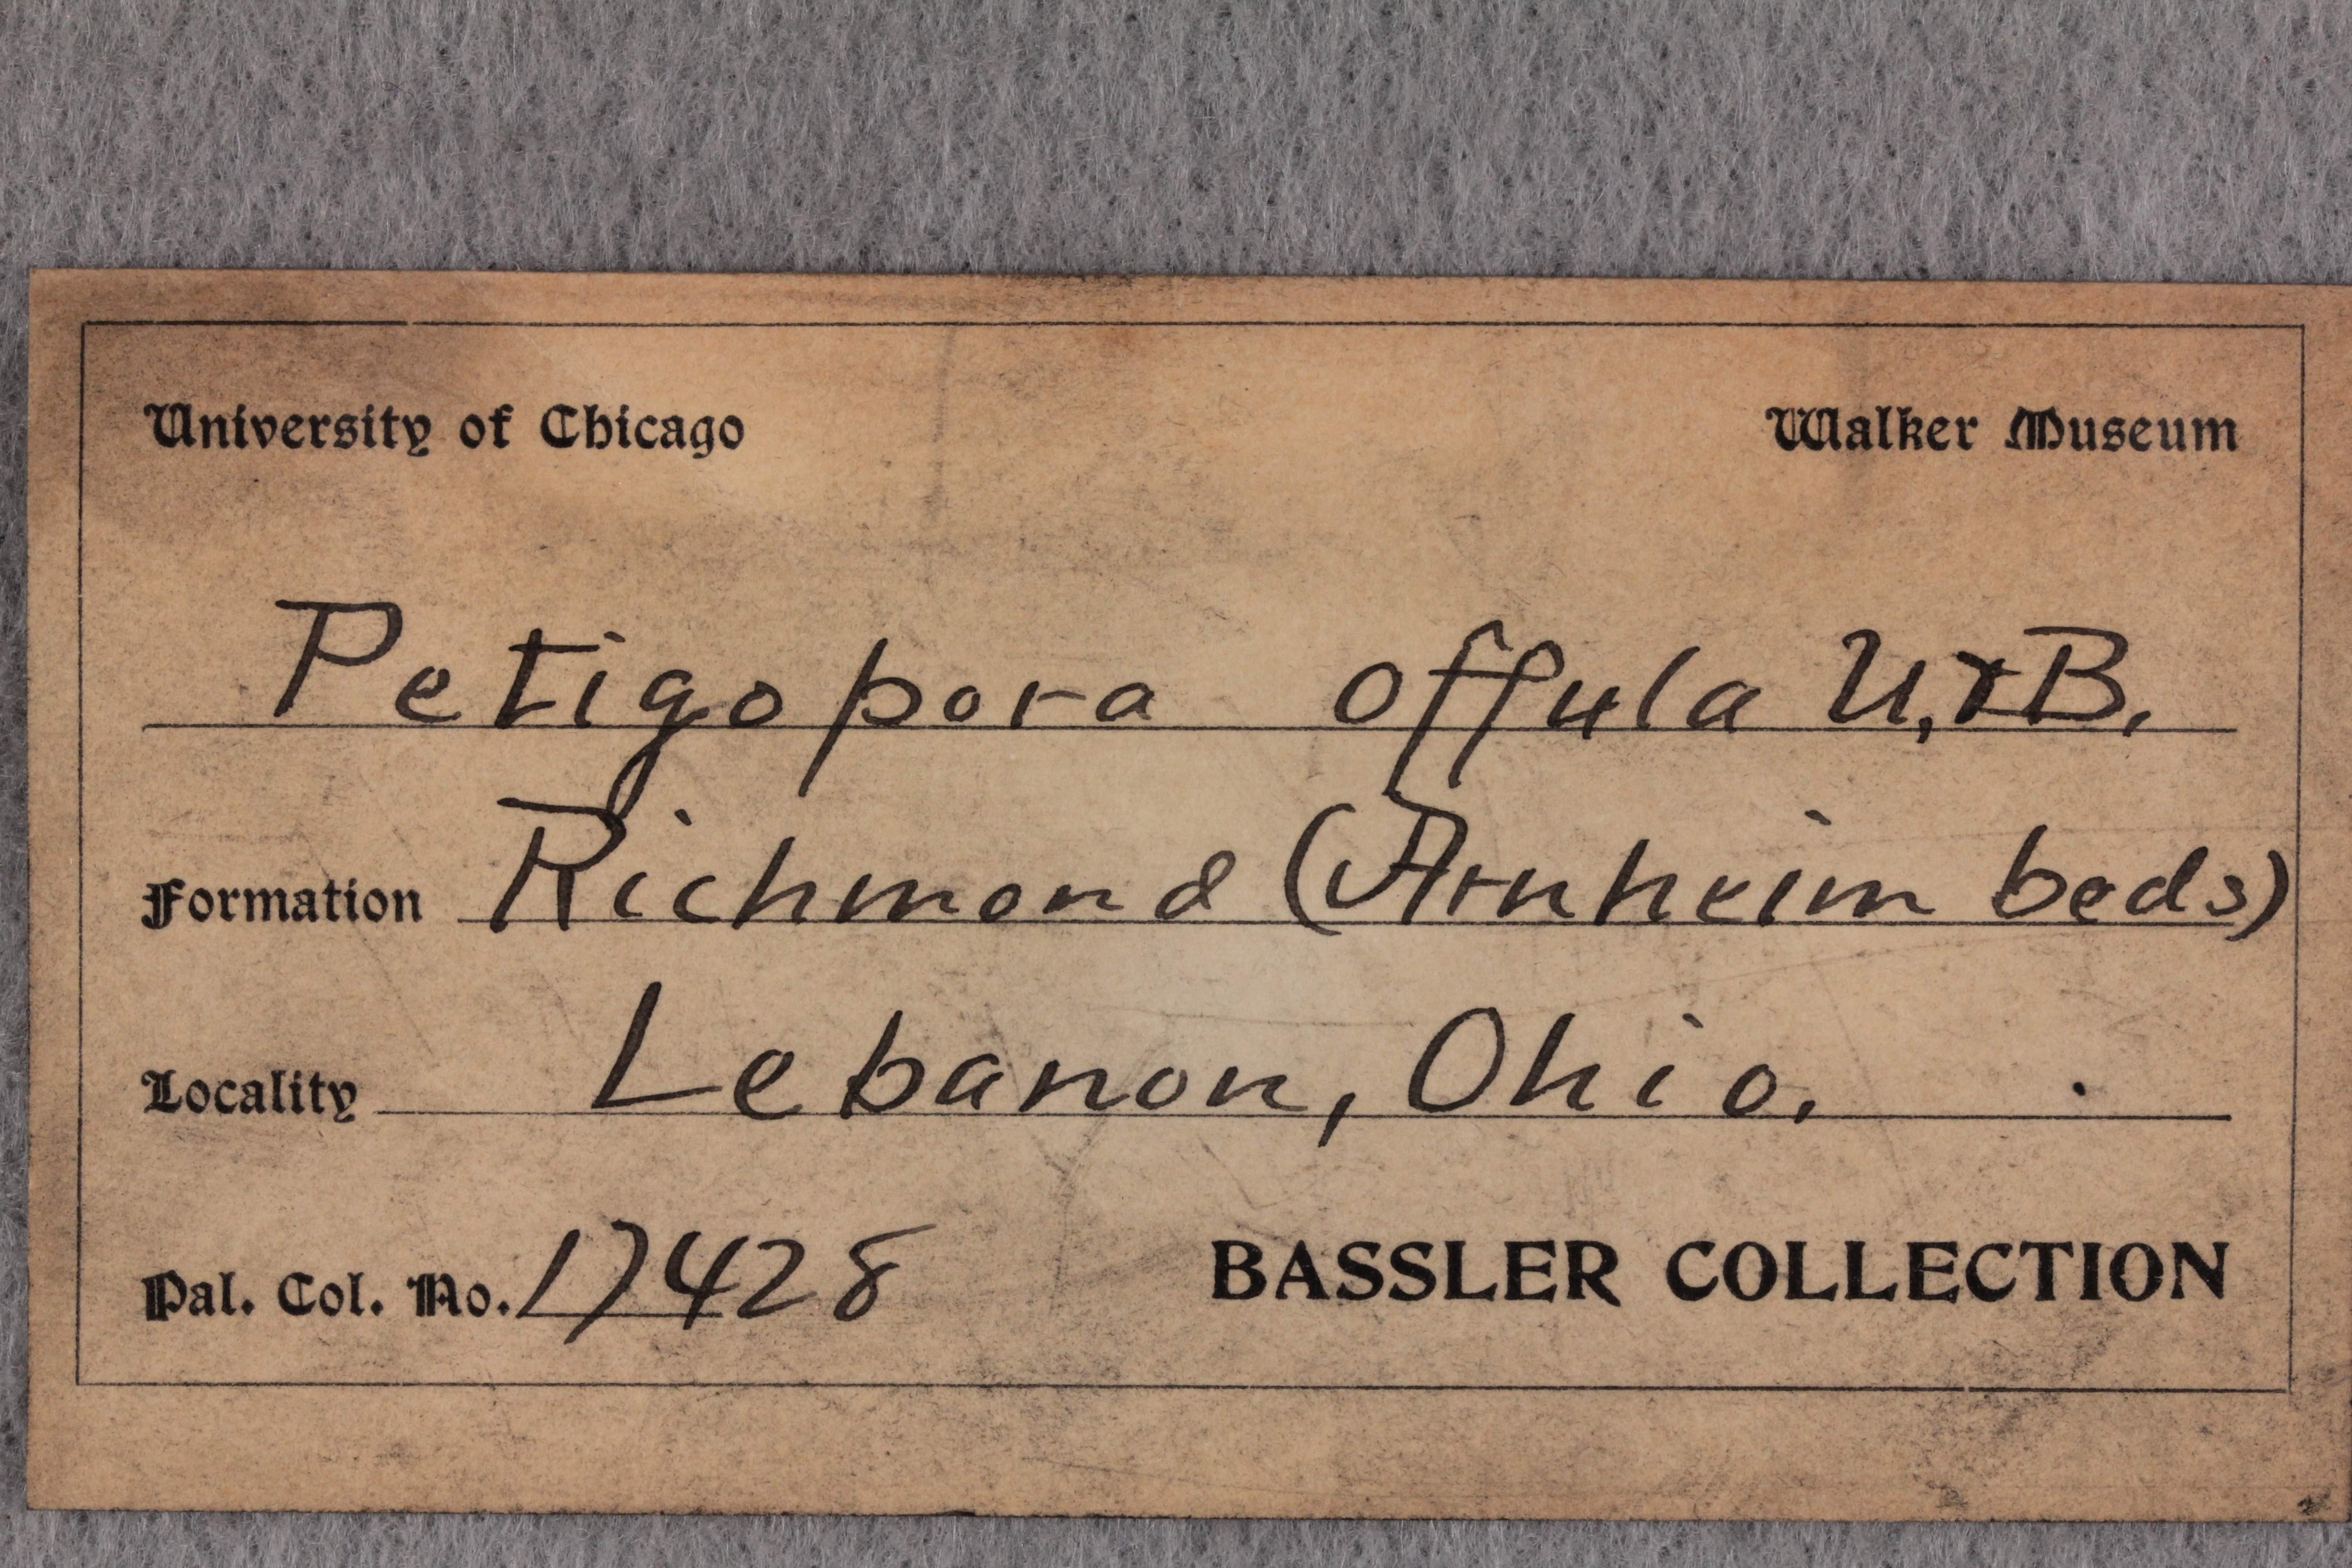 University of Chicago Walker Museum
Petigopora offula U. & B.
Formation Richmond (Arnheim beds)
Locality Lebanon, Ohio.
Pal. Col. No. 17428 BASSLER COLLECTION